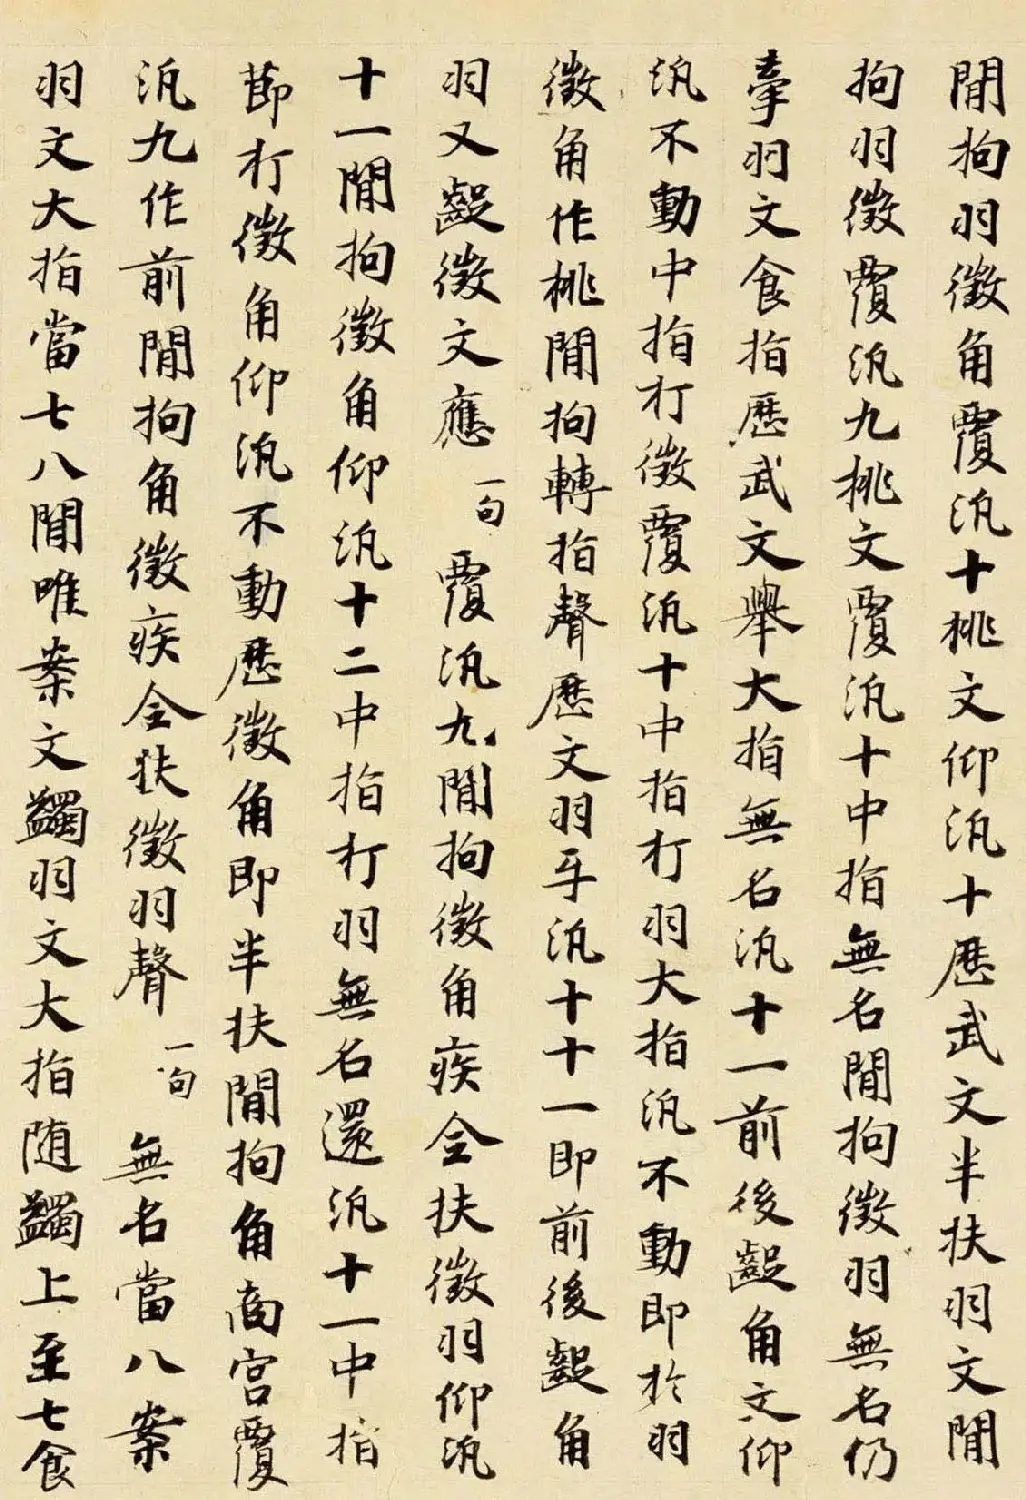 閒拘羽徵角覆汎十挑文仰汎十歷武文半扶羽文閒
拘羽徵覆汎九挑文覆汎十中指無名閒拘徵羽無名仍
牽羽文食指歷武文舉大指無名汎十一前後齪角文仰
汎不動中指打徵覆汎十中指打羽大指汎不動即於羽
徵角作挑閒拘轉指聲歷文羽乎汎十十一即前後齪角
羽又齪徵文應一句覆汎九閒拘徵角疾全扶徵羽仰汎
十一閒拘徵角仰汎十二中指打羽無名還汎十一中指
節打徵角仰汎不動歷徵角即半扶閒拘角商宮覆
汎九作前閒拘角徵疾全扶徵羽聲一句無名當八案
羽文大指當七八閒唯案文蠲羽文大指随蠲上至七食